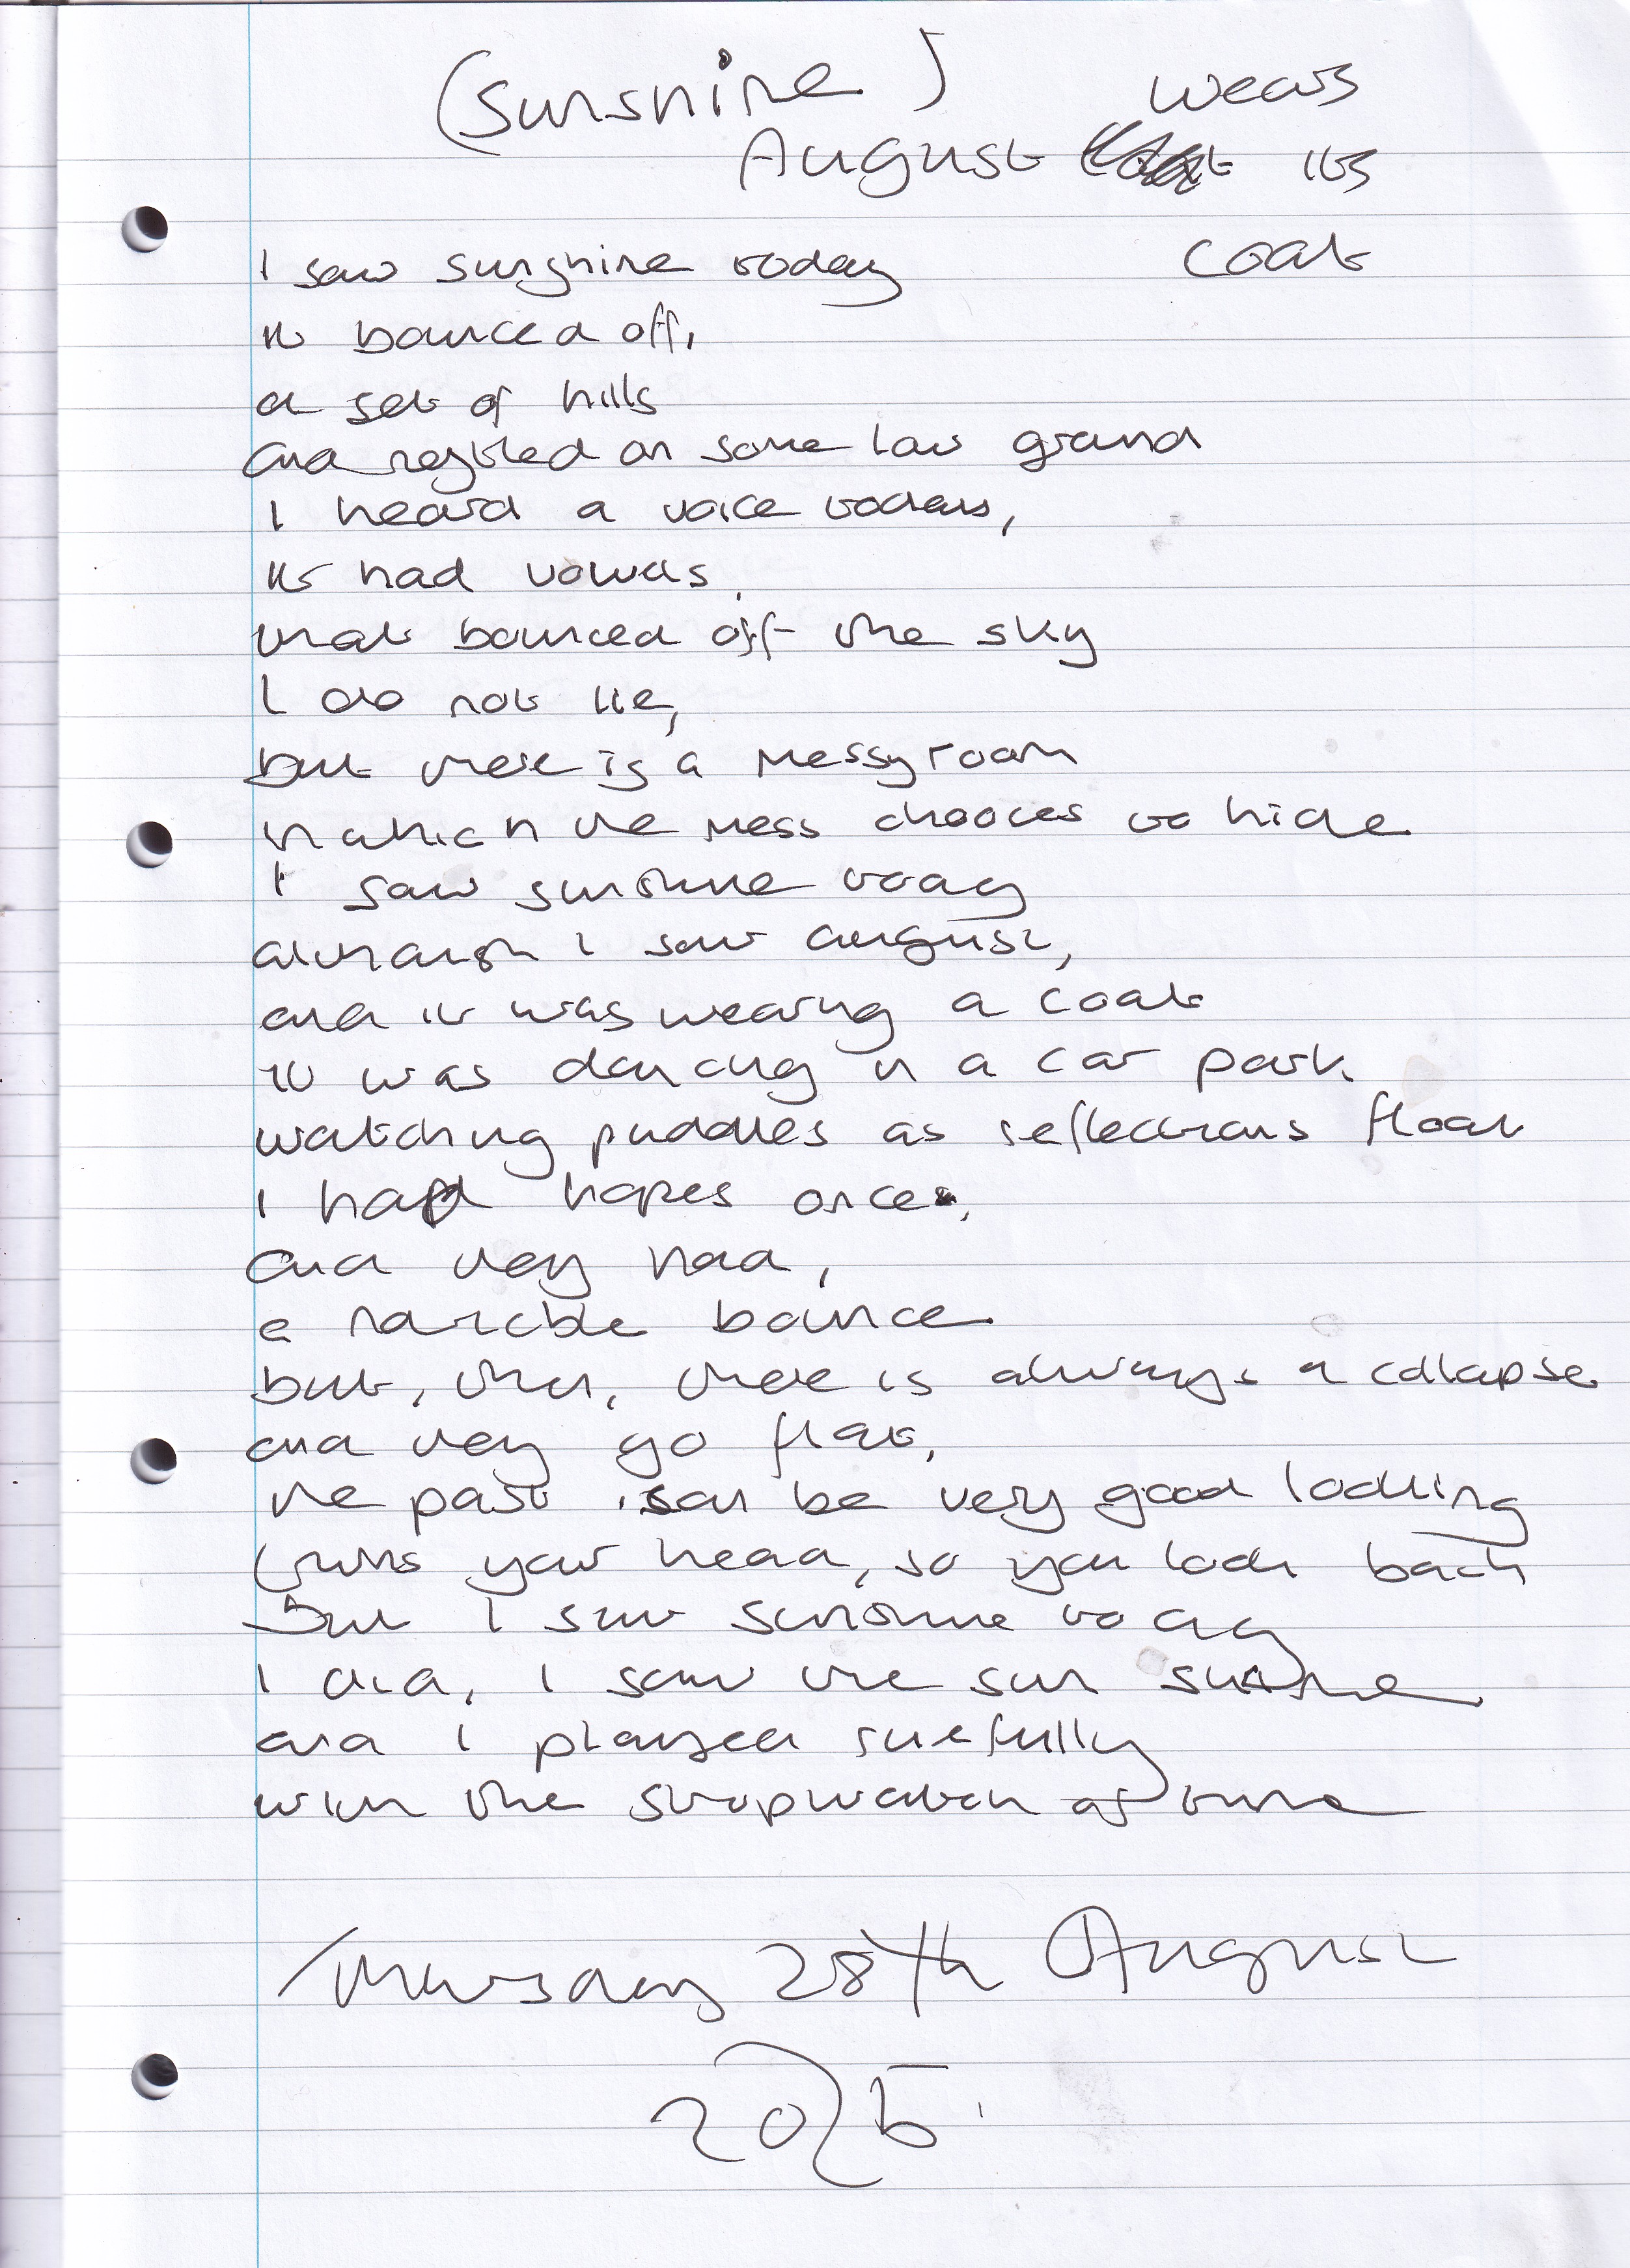 (Sunshine)
wears
August its
coat
I saw sunshine today
it bounced off,
a set of hills
and rested on some low ground
I heard a voice today,
it had vowels,
that bounced off the sky
I do not lie,
but there is a messy room
in which the mess chooces to hide
I saw sunshine today
although I saw august,
and it was wearing a coat
it was dancing in a car park
watching puddles as reflections float
I had hopes once,
and they had,
a noticble bounce
but, then, there is always a collapse
and they go flat,
the past can be very good looking
turns your head, so you look back
but I saw sunshine today
I did, I saw the sun shine
and I played ruefully
with the stopwatch of time
Thursday 28th August
2025.